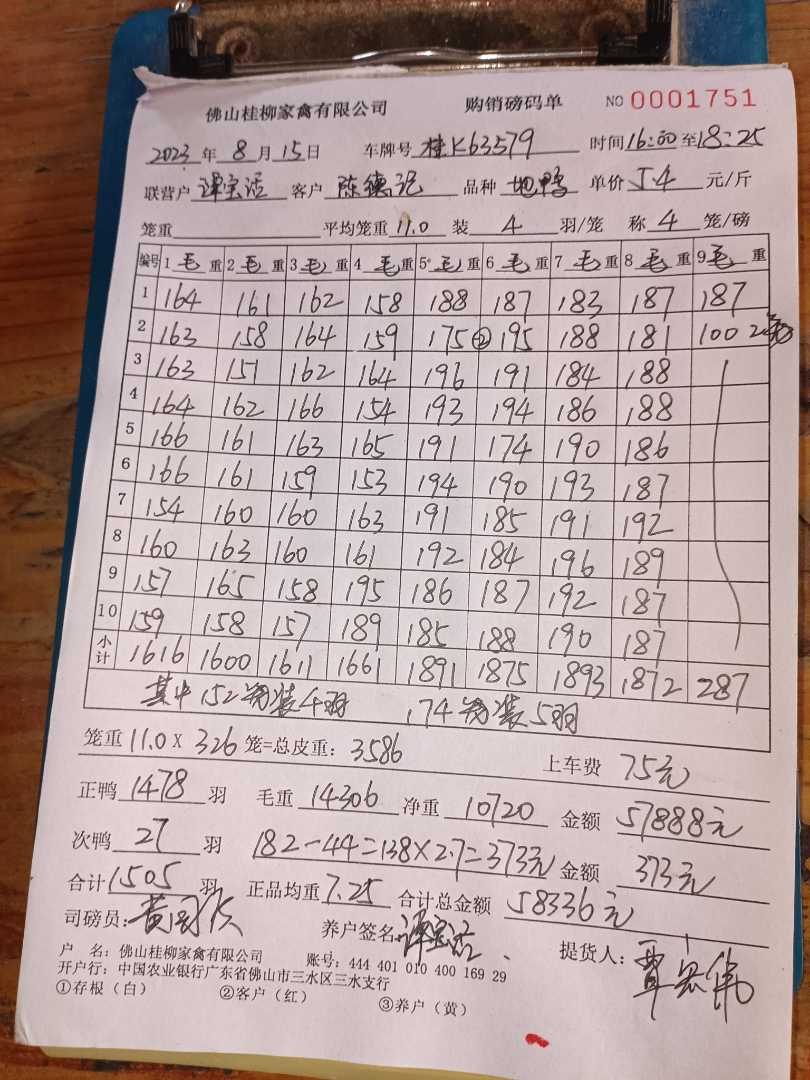 佛山桂柳家禽有限公司 购销磅码单 NO 0001751
2023 年 8 月 15 日 车牌号 桂K63579 时间 16:00 至 18:25
联营户 谭宝活 客户 陈德记 品种 地鸭 单价 5.4 元/斤
笼重 平均笼重 11.0 装 4 羽/笼 称 4 笼/磅
编号 1 毛 重 2 毛 重 3 毛 重 4 毛 重 5 毛 重 6 毛 重 7 毛 重 8 毛 重 9 毛 重
1 164 161 162 158 188 187 183 187 187
2 163 158 164 159 175 ② 195 188 181 100 2笼
3 163 151 162 164 196 191 184 188
4 164 162 166 154 193 194 186 188
5 166 161 163 165 191 174 190 186
6 166 161 159 153 194 190 193 187
7 154 160 160 163 191 185 191 192
8 160 163 160 161 192 184 196 189
9 157 165 158 195 186 187 192 187
10 159 158 157 189 185 188 190 187
小计 1616 1600 1611 1661 1891 1875 1893 1872 287
其中152笼装4羽 174笼装5羽
笼重 11.0 X 326 笼=总皮重: 3586 上车费 75元
正鸭 1478 羽 毛重 14306 净重 10720 金额 57888元
次鸭 27 羽 182-44=138×2.7=373元 金额 373元
合计 1505 羽 正品均重 7.25 合计总金额 58336元
司磅员: 养户签名 谭宝活 提货人:
户 名: 佛山桂柳家禽有限公司 账号: 444 401 010 400 169 29
开户行: 中国农业银行广东省佛山市三水区三水支行
①存根(白) ②客户(红) ③养户(黄)